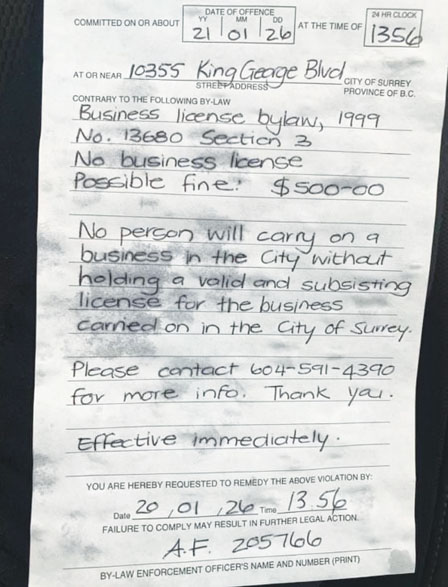 DATE OF OFFENCE
24 HR CLOCK
YY MM DD
COMMITTED ON OR ABOUT 21 01 26 AT THE TIME OF 1356
AT OR NEAR 10355 King George Blvd CITY OF SURREY
STREET ADDRESS PROVINCE OF B.C.
CONTRARY TO THE FOLLOWING BY-LAW
Business license bylaw, 1999
No. 13680 Section 3
No business license
Possible fine: $500-00
No person will carry on a
business in the City without
holding a valid and subsisting
license for the business
carried on in the City of Surrey.
Please contact 604-591-4390
for more info. Thank you.
Effective immediately.
YOU ARE HEREBY REQUESTED TO REMEDY THE ABOVE VIOLATION BY:
Date 20, 01, 26 Time 13.56
FAILURE TO COMPLY MAY RESULT IN FURTHER LEGAL ACTION.
A.F. 205766
BY-LAW ENFORCEMENT OFFICER'S NAME AND NUMBER (PRINT)